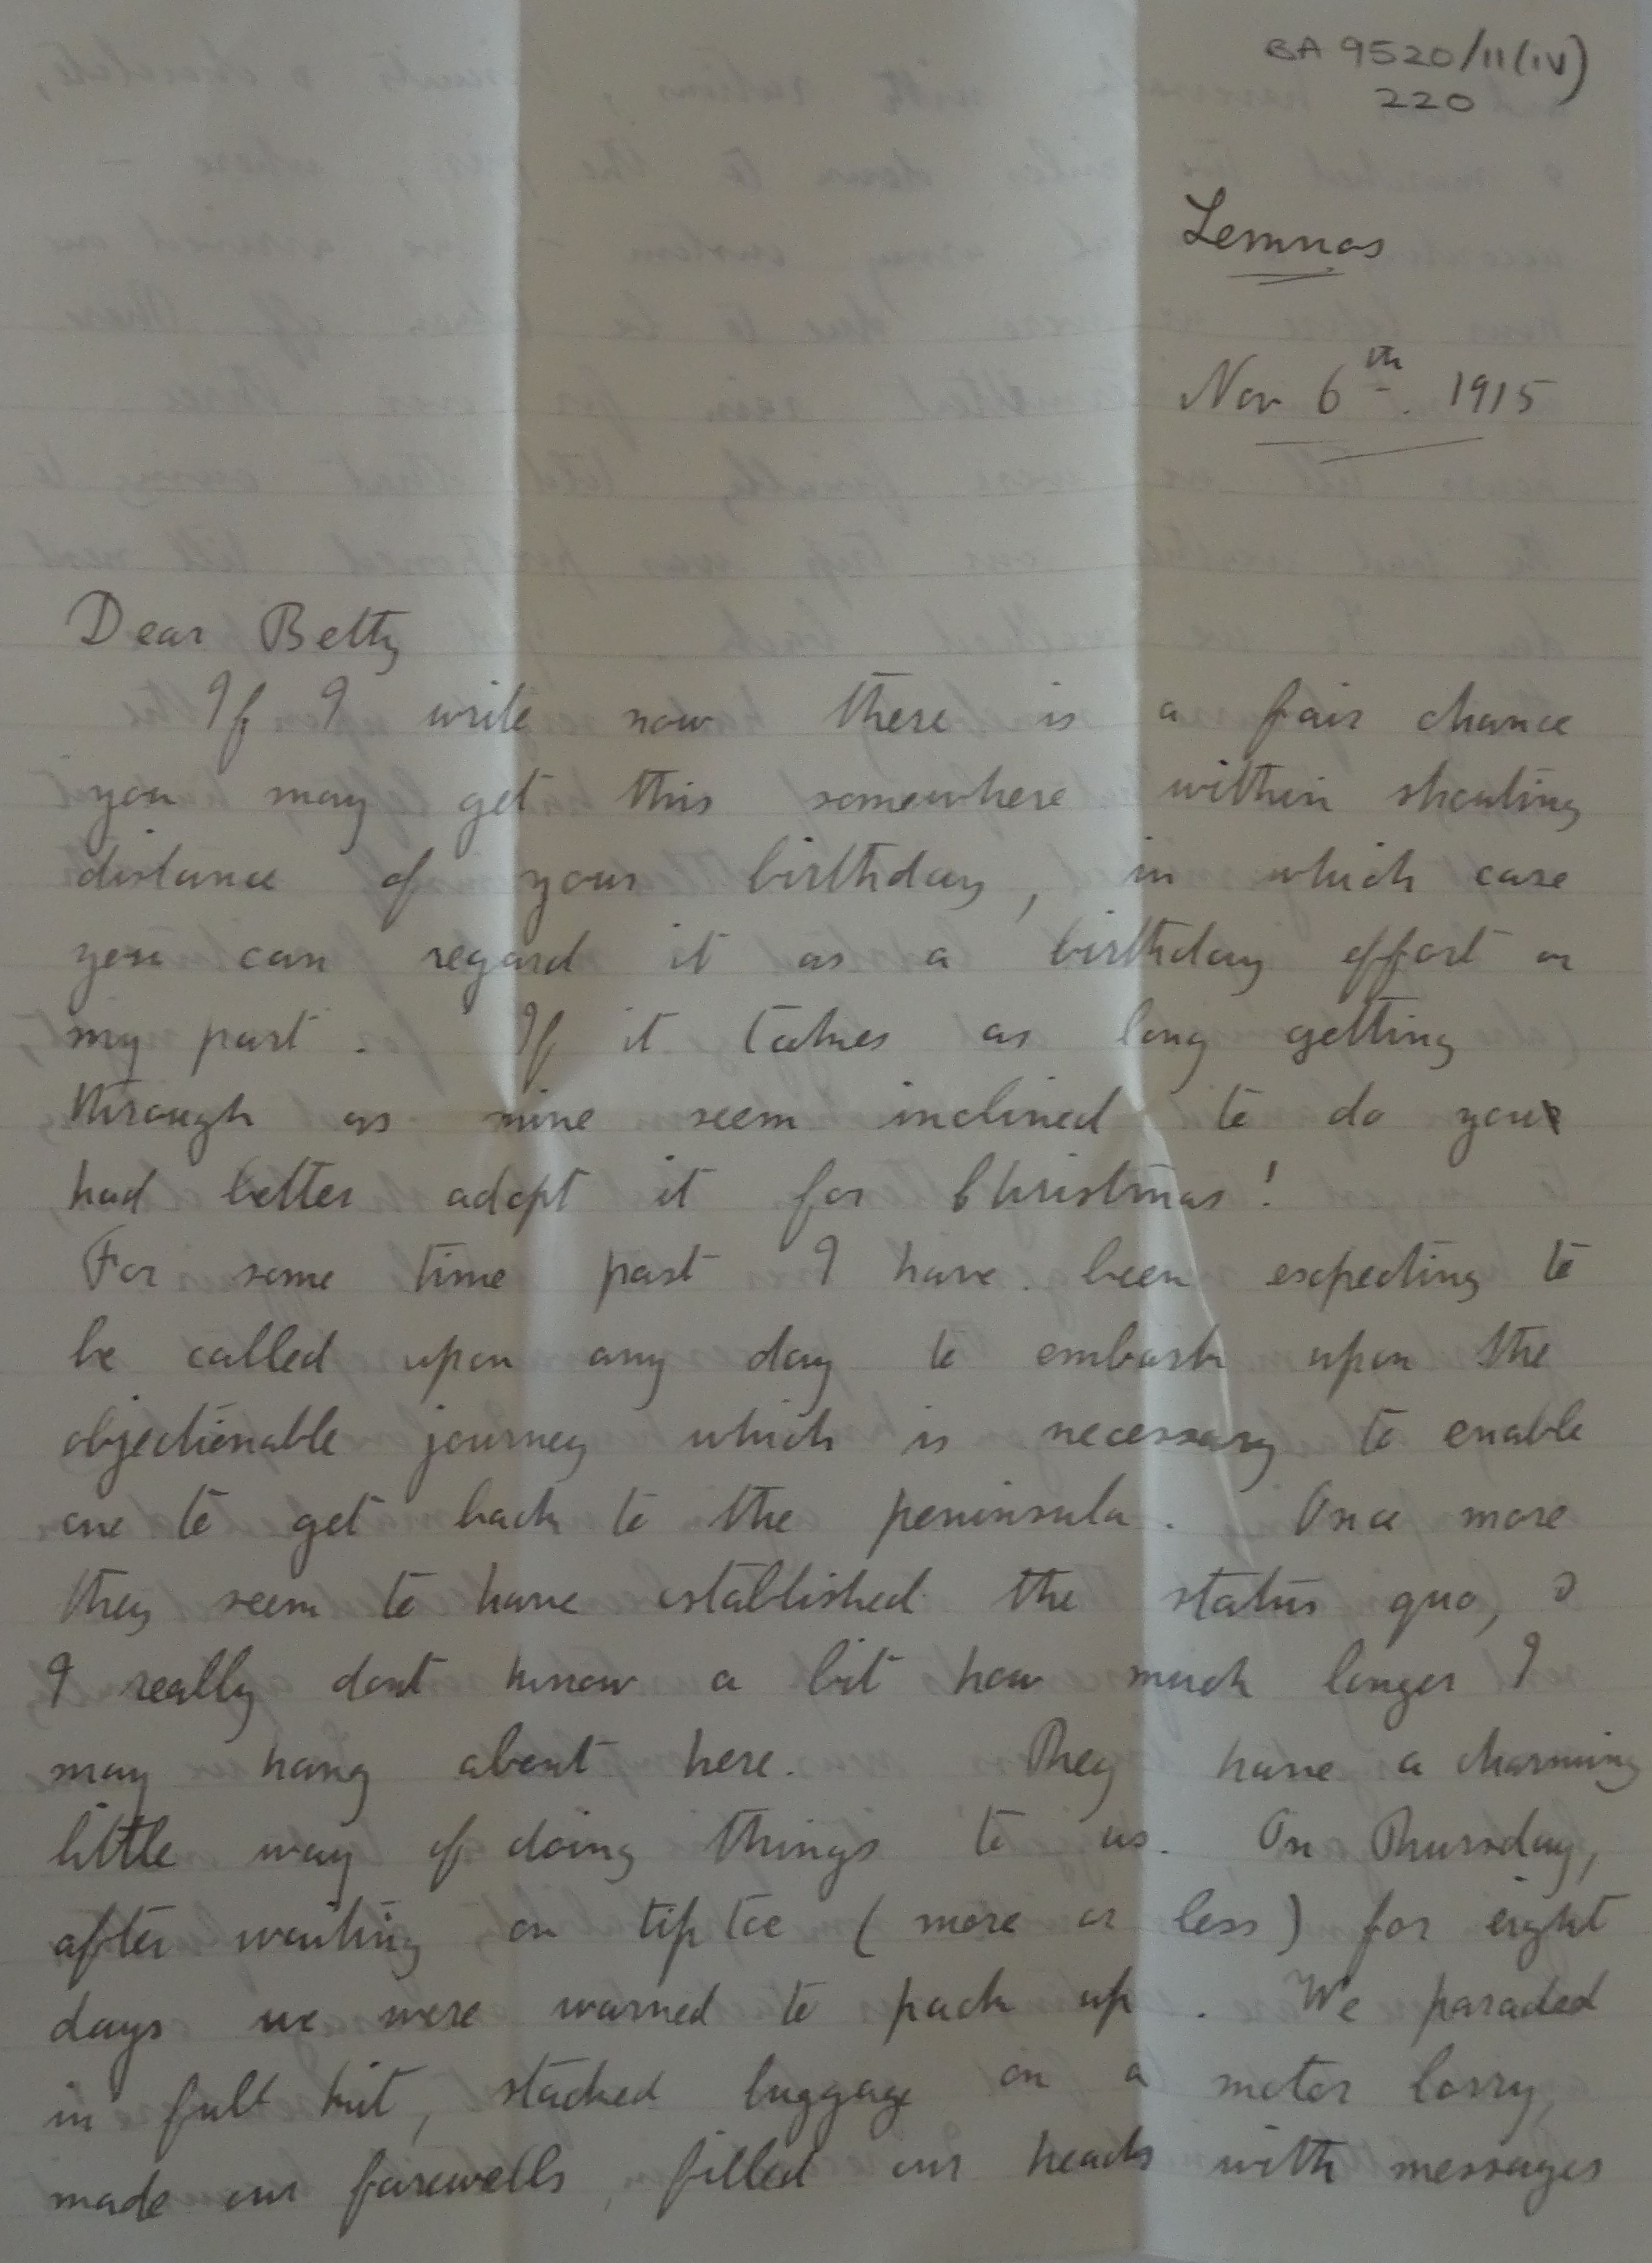 BA 9520/11(iv)
220
Lemnos
Nov 6th. 1915
Dear Betty
If I write now there is a fair chance
you may get this somewhere within shouting
distance of your birthday, in which case
you can regard it as a birthday effort on
my part. If it takes as long getting
through as mine seem inclined to do you
had better adopt it for Christmas!
For some time past I have been expecting to
be called upon any day to embark upon the
objectionable journey which is necessary to enable
one to get back to the peninsula. Once more
they seem to have established the status quo, &
I really dont know a bit how much longer I
may hang about here. They have a charming
little way of doing things to us. On Thursday,
after waiting on tip toe (more or less) for eight
days we were warned to pack up. We paraded
in full kit, stacked luggage on a motor lorry,
made our farewells, filled our heads with messages